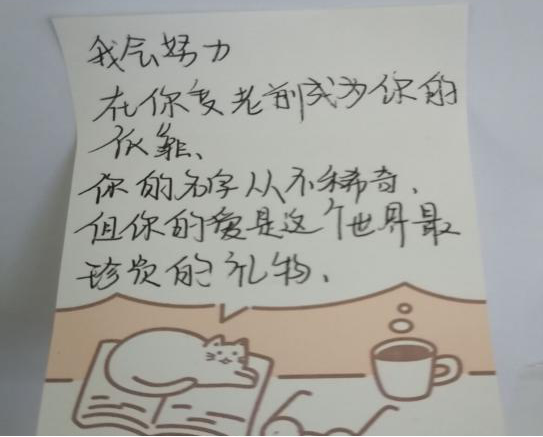 我会努力
在你变老前成为你的
依靠、
你的名字从不稀奇,
但你的爱是这个世界最
珍贵的礼物,